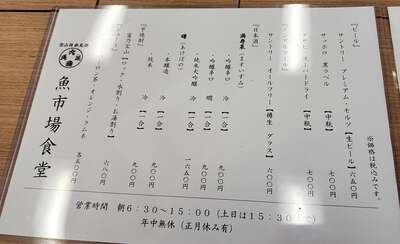 ※価格は税込みです。
【ビール】
サントリー プレミアム・モルツ【生ビール】六五〇円
サッポロ 黒ラベル 【中瓶】 七〇〇円
スーパードライ 【中瓶】 七〇〇円
【ノンアルコール】
サントリー オールフリー【樽生 グラス】 六〇〇円
【日本酒】
満寿泉(ますいずみ)
・吟醸辛口 冷【一合】 九〇〇円
・吟醸辛口 燗【一合】 九〇〇円
・純米大吟醸 冷【一合】 一六五〇円
曙(あけぼの)
・本醸造 冷【一合】 九〇〇円
・純米 冷【一合】 九〇〇円
【芋焼酎】
富乃宝山【ロック・水割り・お湯割り】 六八〇円
茶・オレンジ・
各五〇〇円
魚市場食堂
営業時間 朝6:30~15:00(土日は15:30
年中無休(正月休み有)